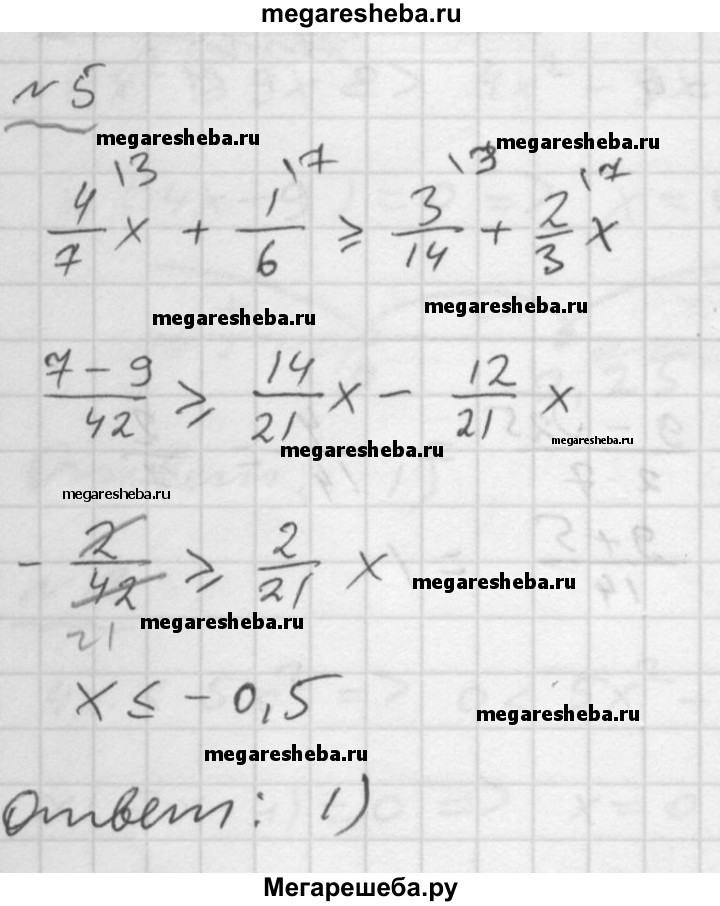 megaresheba.ru
№ 5
megaresheba.ru megaresheba.ru
4/7 x \3 + 1/6 \7 ≥ 3/14 \3 + 2/3 x \7
megaresheba.ru megaresheba.ru
7 - 9 / 42 ≥ 14/21 x - 12/21 x
megaresheba.ru megaresheba.ru
megaresheba.ru
- 2/42 21 ≥ 2/21 x
megaresheba.ru megaresheba.ru
x ≤ - 0,5
megaresheba.ru megaresheba.ru
Ответ: 1)
Мегарешеба.ру